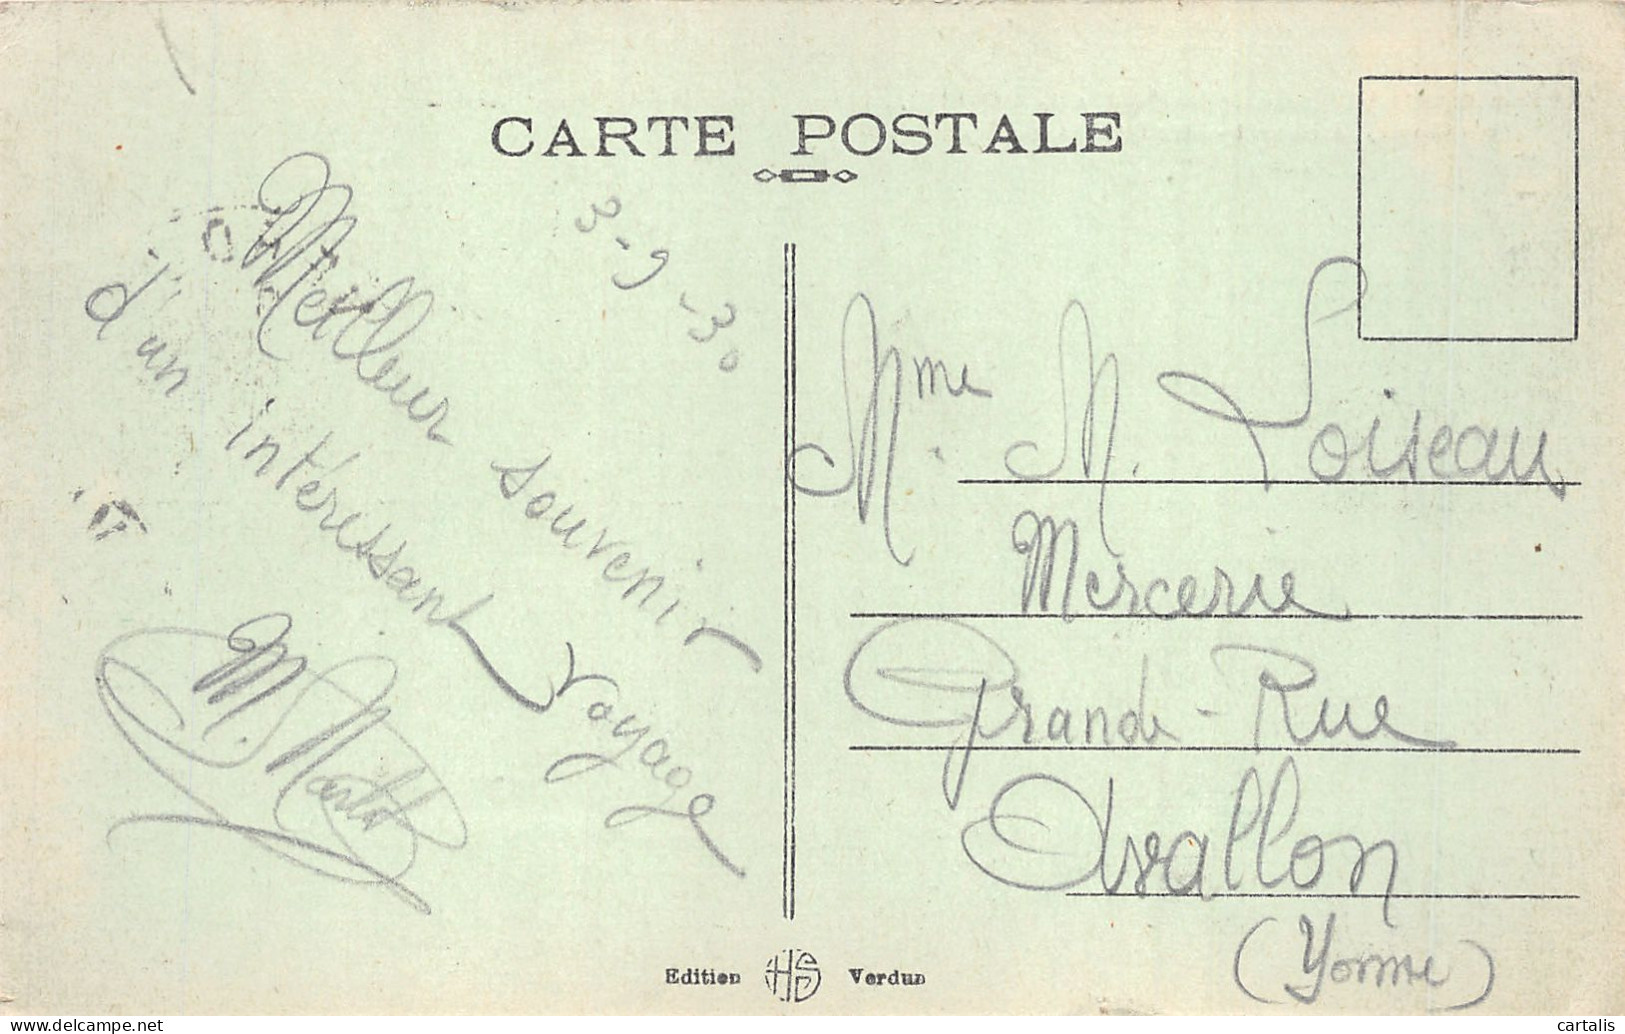 CARTE POSTALE
3-9-30
Meilleur souvenir
d'un intéressant voyage
M.
Mme M. Loiseau
Mercerie
Grande-Rue
Avallon
(Yonne)
Edition HS Verdun
cartalis
delcampe.net